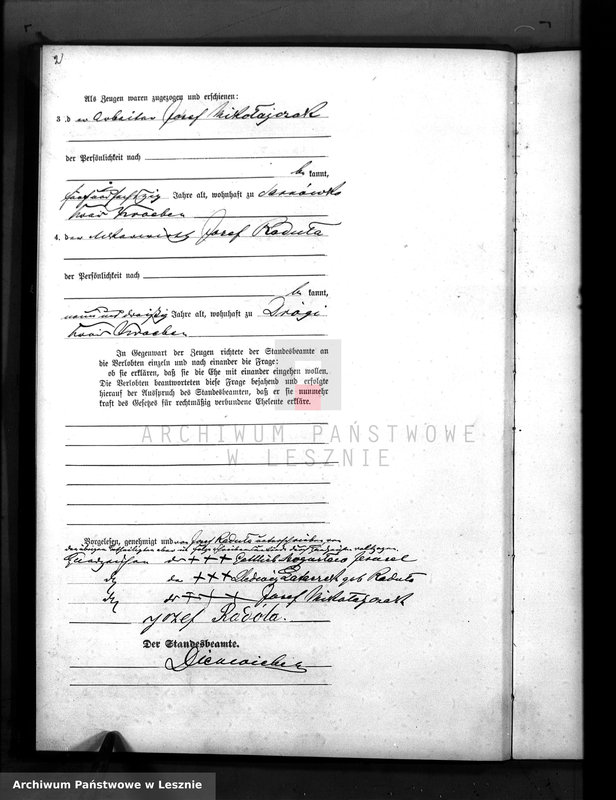 2
Als Zeugen waren zugezogen und erschienen:
3. der Arbeiter Josef Mikołajczak
der Persönlichkeit nach
be kannt,
fünfundsechzig Jahre alt, wohnhaft zu Sarnówko
Kreis Kroeben
4. der Josef Raduła
der Persönlichkeit nach
be kannt,
neun und dreißig Jahre alt, wohnhaft zu Drogi
Kreis Kroeben
In Gegenwart der Zeugen richtete der Standesbeamte an
die Verlobten einzeln und nach einander die Frage:
ob sie erklären, daß sie die Ehe mit einander eingehen wollen.
Die Verlobten beantworteten diese Frage bejahend und erfolgte
hierauf der Ausspruch des Standesbeamten, daß er sie nunmehr
kraft des Gesetzes für rechtmäßig verbundene Eheleute erkläre.
ARCHIWUM PAŃSTWOWE
W LESZNIE
Vorgelesen, genehmigt und von Josef Raduła unterschrieben, von
den übrigen Betheiligten aber durch Handzeichen vollzogen.
Handzeichen der +++ Gottlieb
der +++ geb Raduła
der +++ Josef Mikołajczak
Jozef Radóła.
Der Standesbeamte.
Archiwum Państwowe w Lesznie